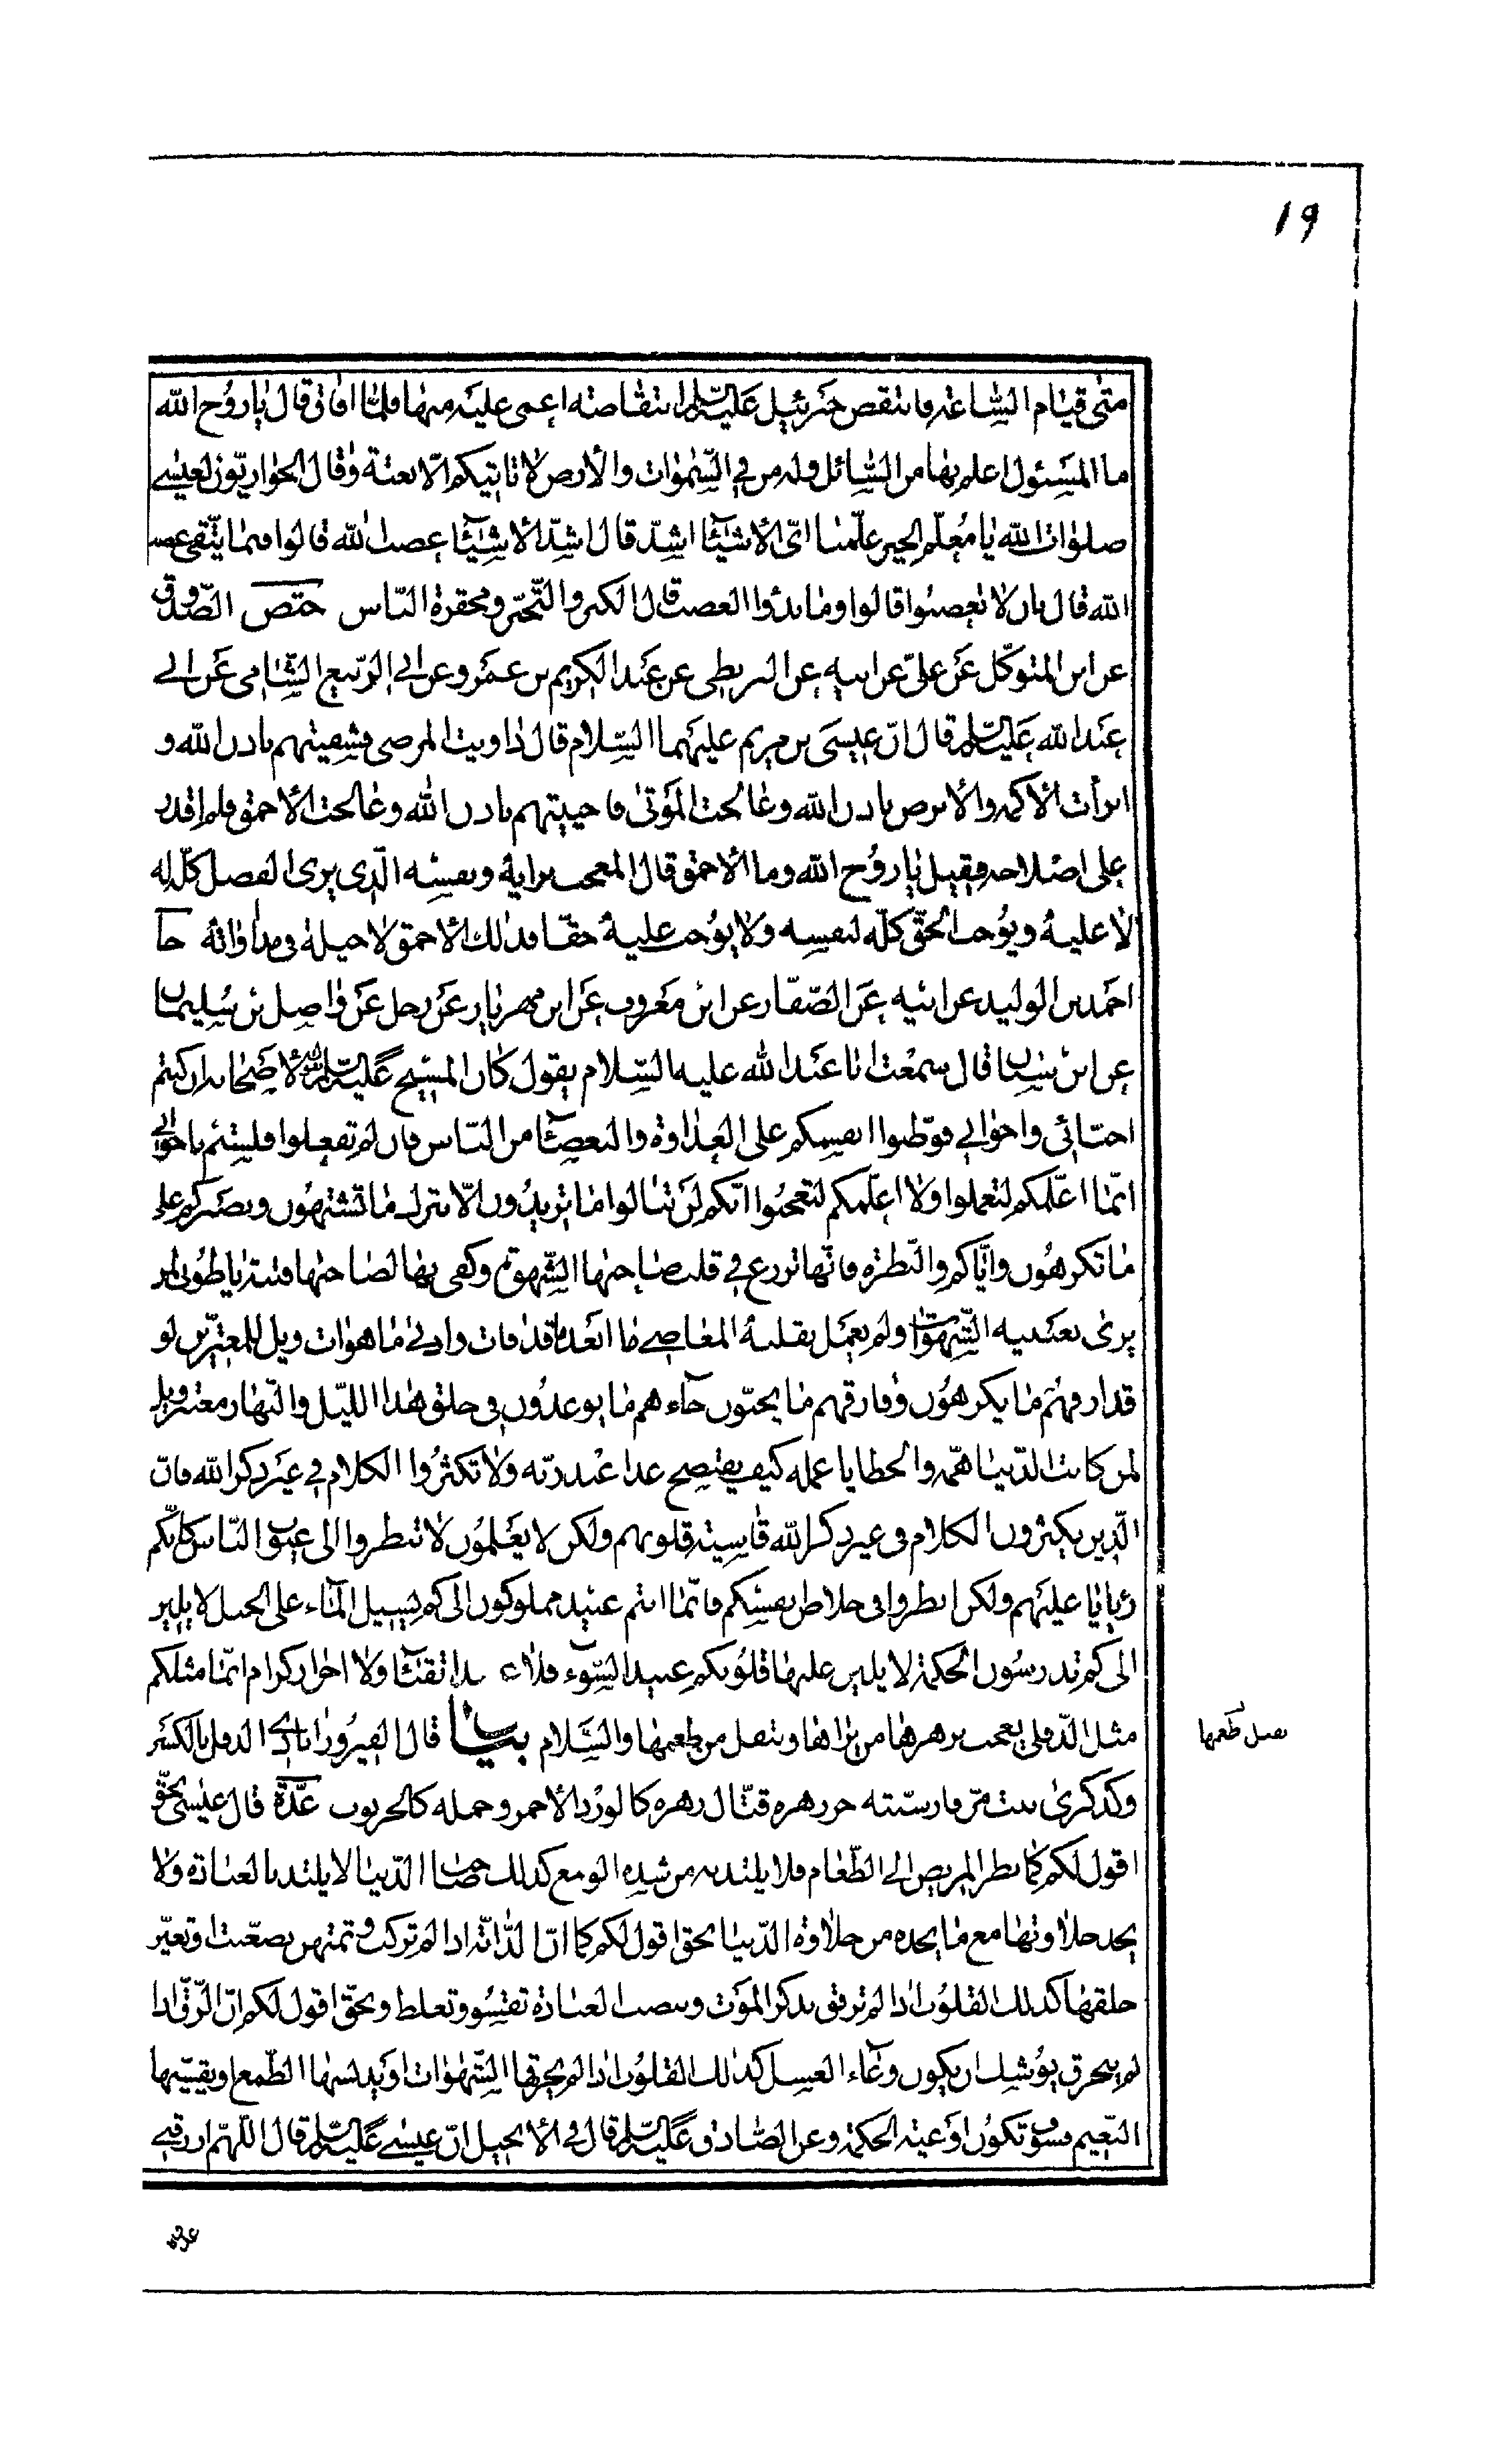 19
متى قيام الساعة فانتفض جبرئيل عليه السلم انتفاضة اغمي عليه منها فلما افاق قال يا روح الله
ما المسئول اعلم بها من السائل وله من في السموات والأرض لا تاتيكم الا بغتة وقال الحواريون لعيسى
صلوات الله يا معلم الخير علمنا اي الأشياء اشد قال اشد الأشياء غضب الله قالوا فبما يتقى غضب
الله قال بان لا تغضبوا قالوا وما بدؤا الغضب قال الكبر والتجبر ومحقرة الناس ختص الصدوق
عن ابن المتوكل عن علي عن ابيه عن البزنطي عن عبد الكريم بن عمرو عن ابي الربيع الشامي عن ابي
عبد الله عليه السلم قال ان عيسى بن مريم عليهما السلام قال داويت المرضى فشفيتهم باذن الله و
ابرأت الأكمه والأبرص باذن الله وعالجت الموتى فاحييتهم باذن الله وعالجت الأحمق فلم اقدر
على اصلاحه فقيل يا روح الله وما الأحمق قال المعجب برايه ونفسه الذي يرى الفضل كله له
لا عليه ويوجب الحق كله لنفسه ولا يوجب عليه حقا فذلك الأحمق لا حيلة في مداواته جا
احمد بن الوليد عن ابيه عن الصفار عن ابن معروف عن ابن مهزيار عن رجل عن واصل بن سليمان
عن ابن سنان قال سمعت ابا عبد الله عليه السلام يقول كان المسيح عليه السلم يقول لأصحابه ان كنتم
احبائي واخواني فوطنوا انفسكم على العداوة والبغضاء من الناس فان لم تفعلوا فلستم باخواني
انما اعلمكم لتعملوا ولا اعلمكم لتعجبوا انكم لن تنالوا ما تريدون الا بترك ما تشتهون وبصبركم على
ما تكرهون واياكم والنظرة فانها تزرع في قلب صاحبها الشهوة وكفى بها لصاحبها فتنة يا طوبى لمن
يرى بعينيه الشهوات ولم يعمل بقلبه المعاصي ما ابعد ما قد فات وادنى ما هو ات ويل للمغترين لو
قد ازفهم ما يكرهون وفارقهم ما يحبون جاءهم ما يوعدون في خلق هذا الليل والنهار معتبر ويل
لمن كانت الدنيا همه والخطايا عمله كيف يفتضح غدا عند ربه ولا تكثروا الكلام في غير ذكر الله فان
الذين يكثرون الكلام في غير ذكر الله قاسية قلوبهم ولكن لا يعلمون لا تنظروا الى عيوب الناس كانكم
رئايا عليهم ولكن انظروا في خلاص نفسكم فانما انتم عبيد مملوكون الى كم يسيل الماء على الجبل لا يلين
الى كم تدرسون الحكمة لا يلين عليها قلوبكم عبيد السوء فلا عبيد اتقياء ولا احرار كرام انما مثلكم
مثل الدفلى يعجب بزهرها من يراها ويقتل من طعمها والسلام بيان قال الفيروزابادي الدفل بالكسر
وكذكرى نبت مر فارسيته خرزهره قتال زهره كالورد الأحمر وحمله كالخرنوب عدة قال عيسى بحق
اقول لكم كما نظر المريض الى الطعام فلا يلتذ به من شدة الوجع كذلك صاحب الدنيا لا يلتذ بالعبادة ولا
يجد حلاوتها مع ما يجده من حلاوة الدنيا بحق اقول لكم كما ان الدابة اذا لم تركب وتمتهن تصعبت وتغير
خلقها كذلك القلوب اذا لم ترقق بذكر الموت وبنصب العبادة تقسو وتغلظ وبحق اقول لكم ان الزق اذا
لم ينخرق يوشك ان يكون وعاء العسل كذلك القلوب اذا لم يخرقها الشهوات او يدنسها الطمع او يقسيها
النعيم فسوف تكون اوعية الحكمة وعن الصادق عليه السلم قال في الأنجيل ان عيسى عليه السلم قال اللهم ارزقني